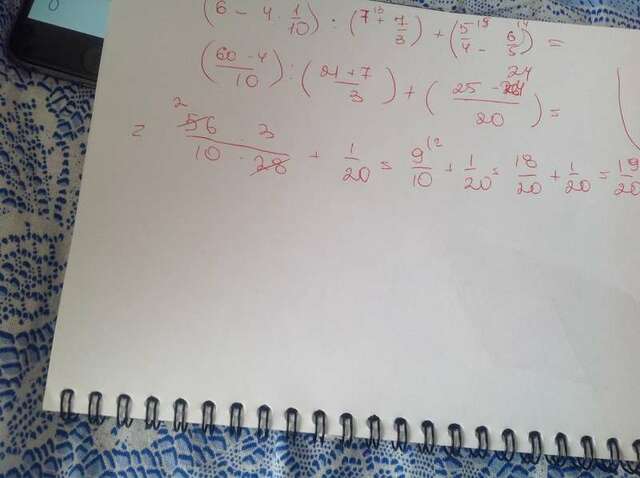 (6 - 4 · 1/10) : (7 + 7/3) + (5/4 - 6/5) =
(60 - 4/10) : (21 + 7/3) + (25 - 24/20) =
= 56 · 3/10 · 28 + 1/20 = 9/10 + 1/20 = 18/20 + 1/20 = 19/20